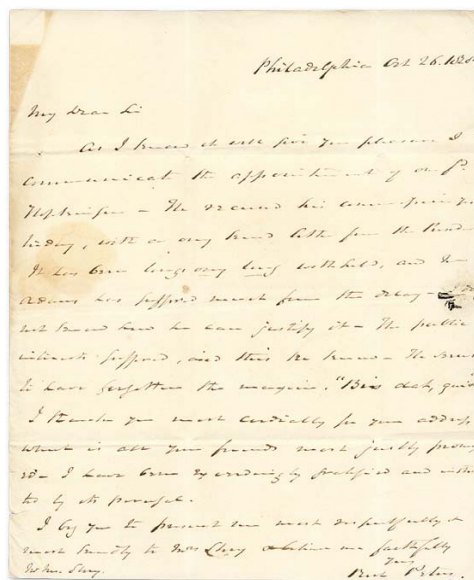 Philadelphia Oct 26. 1828
My Dear Sir
As I know it will give you pleasure I
communicate the appointment of our fd.
Hopkinson – He received his commission
today, with a very kind letter from the
It has been long, very long withheld, and
Adams has suffered much from the delay –
not know how he can justify it – The public
interests suffered, and this he knew – He
to have forgotten the maxim, "Bis dat, qui
I thank you most cordially for your address
which is all your friends most justly
I have been exceedingly gratified and
ted by its perusal.
I beg you to present me most respectfully &
most kindly to Mrs Story & believe me faithfully
yrs
Rich Peters.
Story.